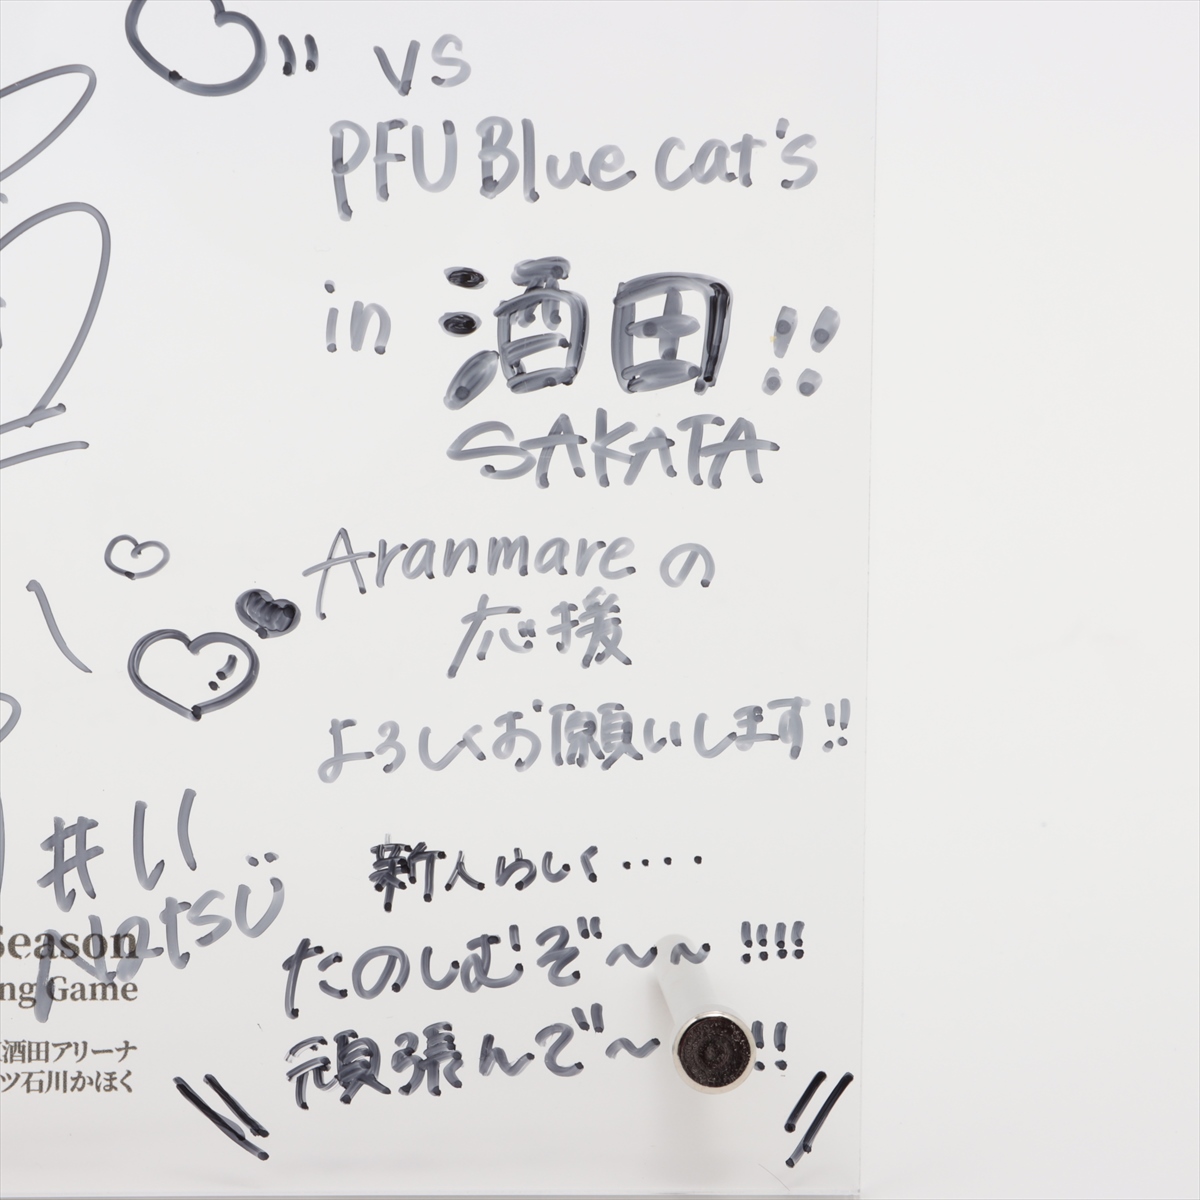 vs
PFU Blue cat's
in 酒田!!
SAKATA
Aranmareの
応援
よろしくお願いします!!
#い
Natsu
新人らしく・・・・・
たのしむぞ〜〜!!!!
頑張んで〜!!
Season
ng Game
酒田アリーナ
ツ石川かほく